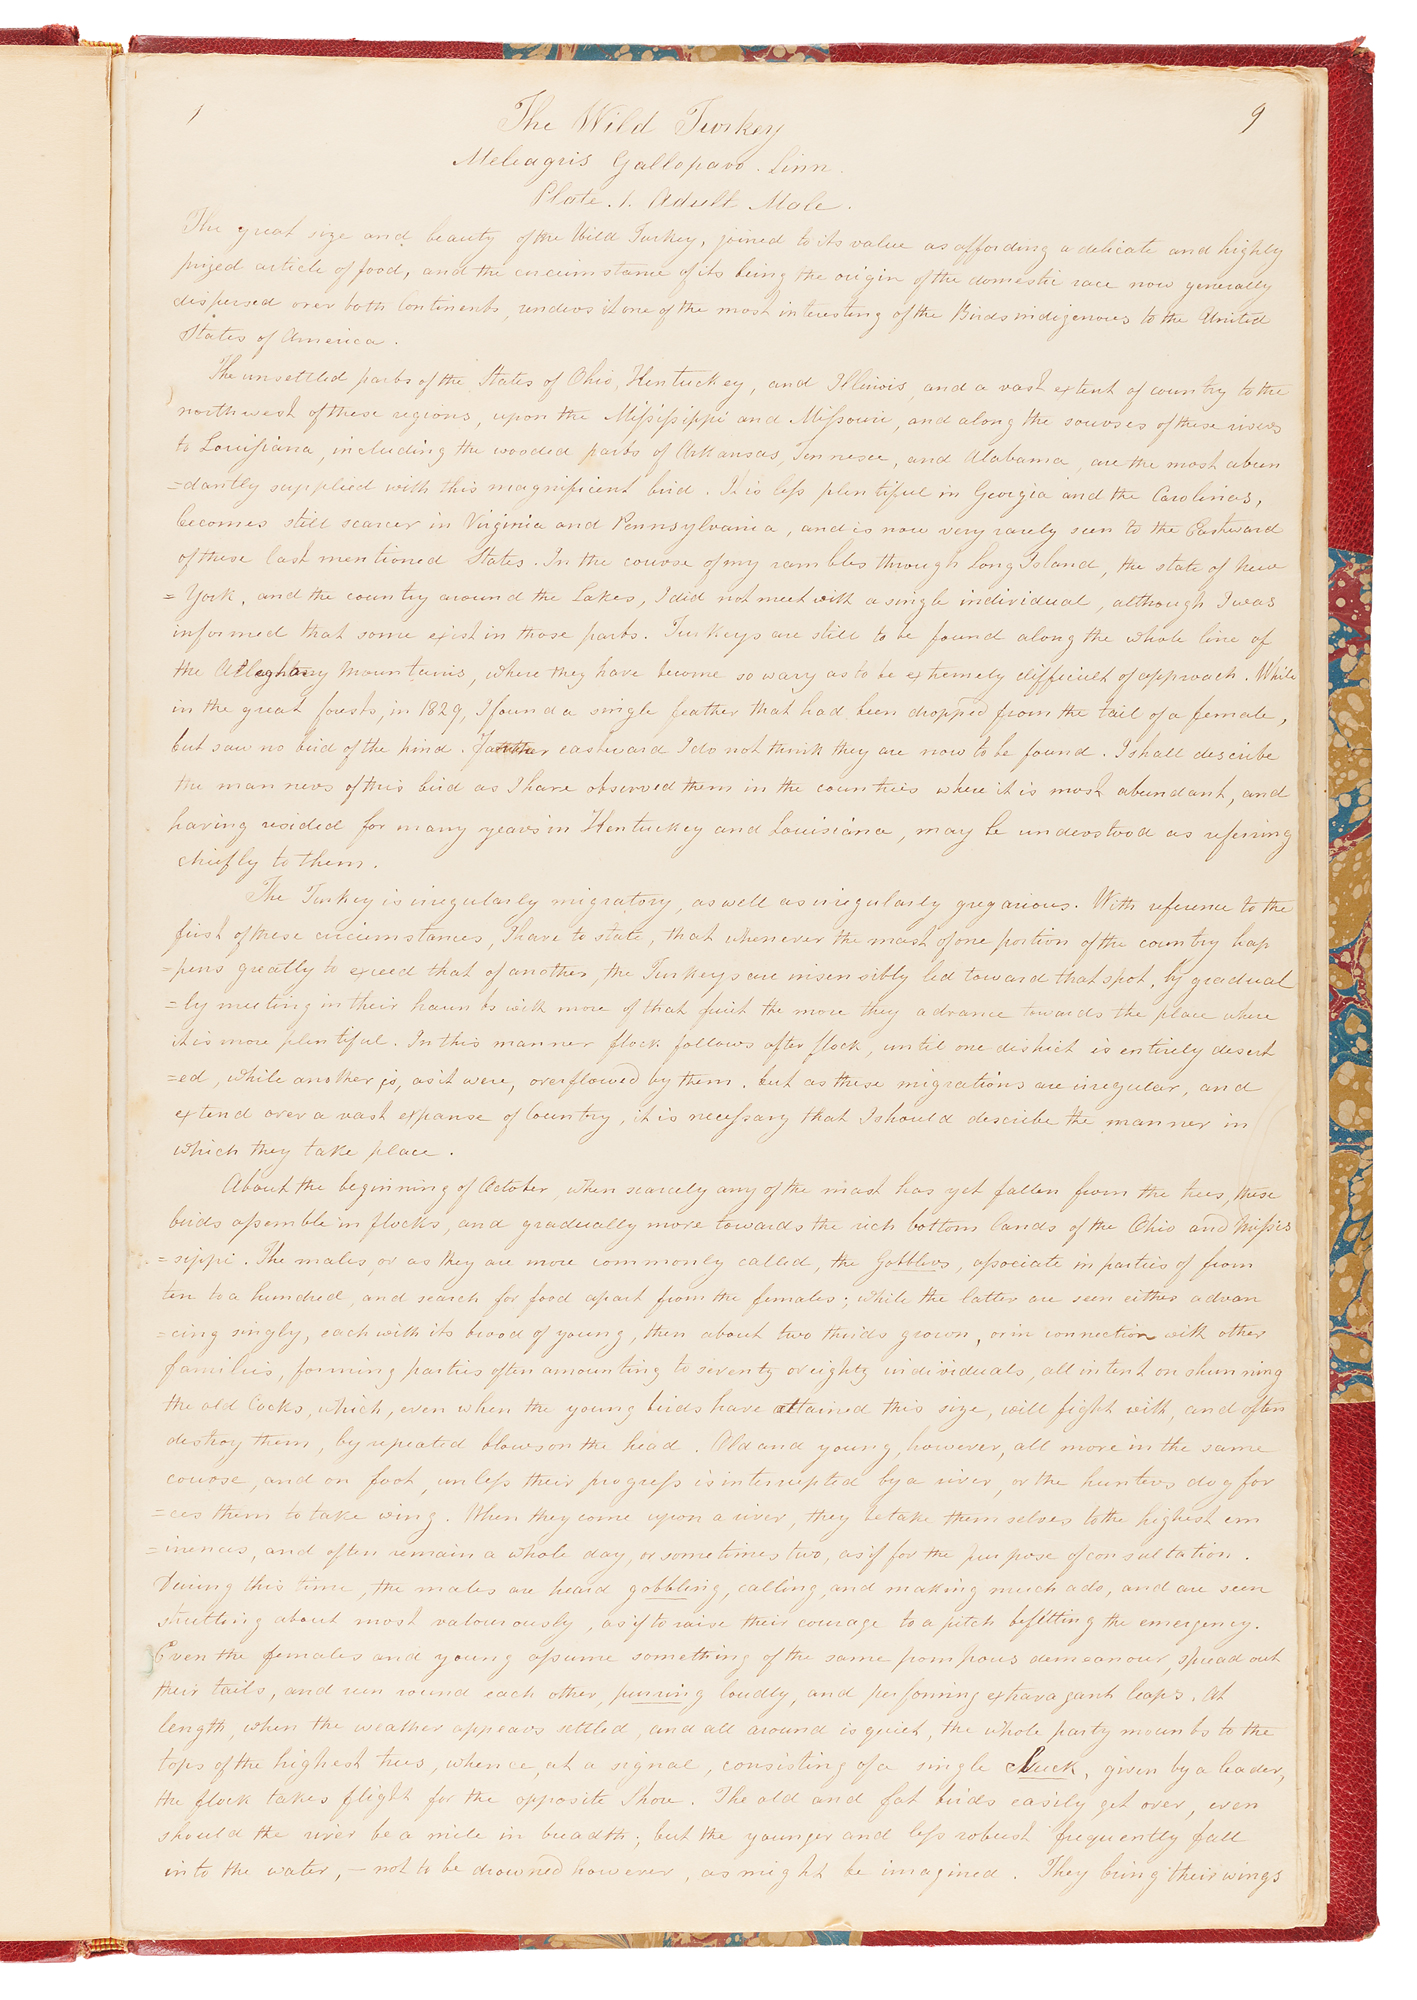 1
9
The Wild Turkey
Meleagris Gallopavo. Linn.
Plate. 1. Adult Male.
The great size and beauty of the Wild Turkey, joined to its value as affording a delicate and highly
prized article of food, and the circumstance of its being the origin of the domestic race now generally
dispersed over both Continents, renders it one of the most interesting of the Birds indigenous to the United
States of America.
The unsettled parts of the States of Ohio, Kentuckey, and Illinois, and a vast extent of country to the
northwest of these regions, upon the Missisippi and Missouri, and along the courses of these rivers
to Louisiana, including the wooded parts of Arkansas, Tennesee, and Alabama, are the most abun
=dantly supplied with this magnificent bird. It is less plentiful in Georgia and the Carolinas,
becomes still scarcer in Virginia and Pennsylvania, and is now very rarely seen to the Eastward
of these last mentioned States. In the course of my rambles through Long Island, the state of New
=York, and the country around the Lakes, I did not meet with a single individual, although I was
informed that some exist in those parts. Turkeys are still to be found along the whole line of
the Alleghany Mountains, where they have become so wary as to be extremely difficult of approach. While
in the great forests, in 1829, I found a single feather that had been dropped from the tail of a female,
but saw no bird of the kind. Farther eastward I do not think they are now to be found. I shall describe
the manners of this bird as I have observed them in the countries where it is most abundant, and
having resided for many years in Kentuckey and Louisiana, may be understood as referring
chiefly to them.
The Turkey is irregularly migratory, as well as irregularly gregarious. With reference to the
first of these circumstances, I have to state, that whenever the mast of one portion of the country hap
=pens greatly to exceed that of another, the Turkeys are insensibly led toward that spot, by gradual
=ly meeting in their haunts with more of that fruit the more they advance towards the place where
it is more plentiful. In this manner flock follows after flock, until one district is entirely desert
=ed, while another is, as it were, overflowed by them. but as these migrations are irregular, and
extend over a vast expanse of Country, it is necessary that I should describe the manner in
which they take place.
About the beginning of October, when scarcely any of the mast has yet fallen from the trees, these
birds assemble in flocks, and gradually move towards the rich bottom lands of the Ohio and Missis
=sippi. The males, or as they are more commonly called, the Gobblers, associate in parties of from
ten to a hundred, and search for food apart from the females; while the latter are seen either advan
=cing singly, each with its brood of young, then about two thirds grown, or in connection with other
families, forming parties often amounting to seventy or eighty individuals, all intent on shunning
the old Cocks, which, even when the young birds have attained this size, will fight with, and often
destroy them, by repeated blows on the head. Old and young, however, all move in the same
course, and on foot, unless their progress is interrupted by a river, or the hunters dog for
=ces them to take wing. When they come upon a river, they betake themselves to the highest em
=inences, and often remain a whole day, or sometimes two, as if for the purpose of consultation.
During this time, the males are heard gobbling, calling, and making much ado, and are seen
strutting about most valourously, as if to raise their courage to a pitch befitting the emergency.
Even the females and young assume something of the same pompous demeanour, spread out
their tails, and run round each other, purring loudly, and performing extravagant leaps. At
length, when the weather appears settled, and all around is quiet, the whole party mounts to the
tops of the highest trees, whence, at a signal, consisting of a single cluck, given by a leader,
the flock takes flight for the opposite Shore. The old and fat birds easily get over, even
should the river be a mile in breadth; but the younger and less robust frequently fall
into the water, – not to be drowned however, as might be imagined. They bring their wings